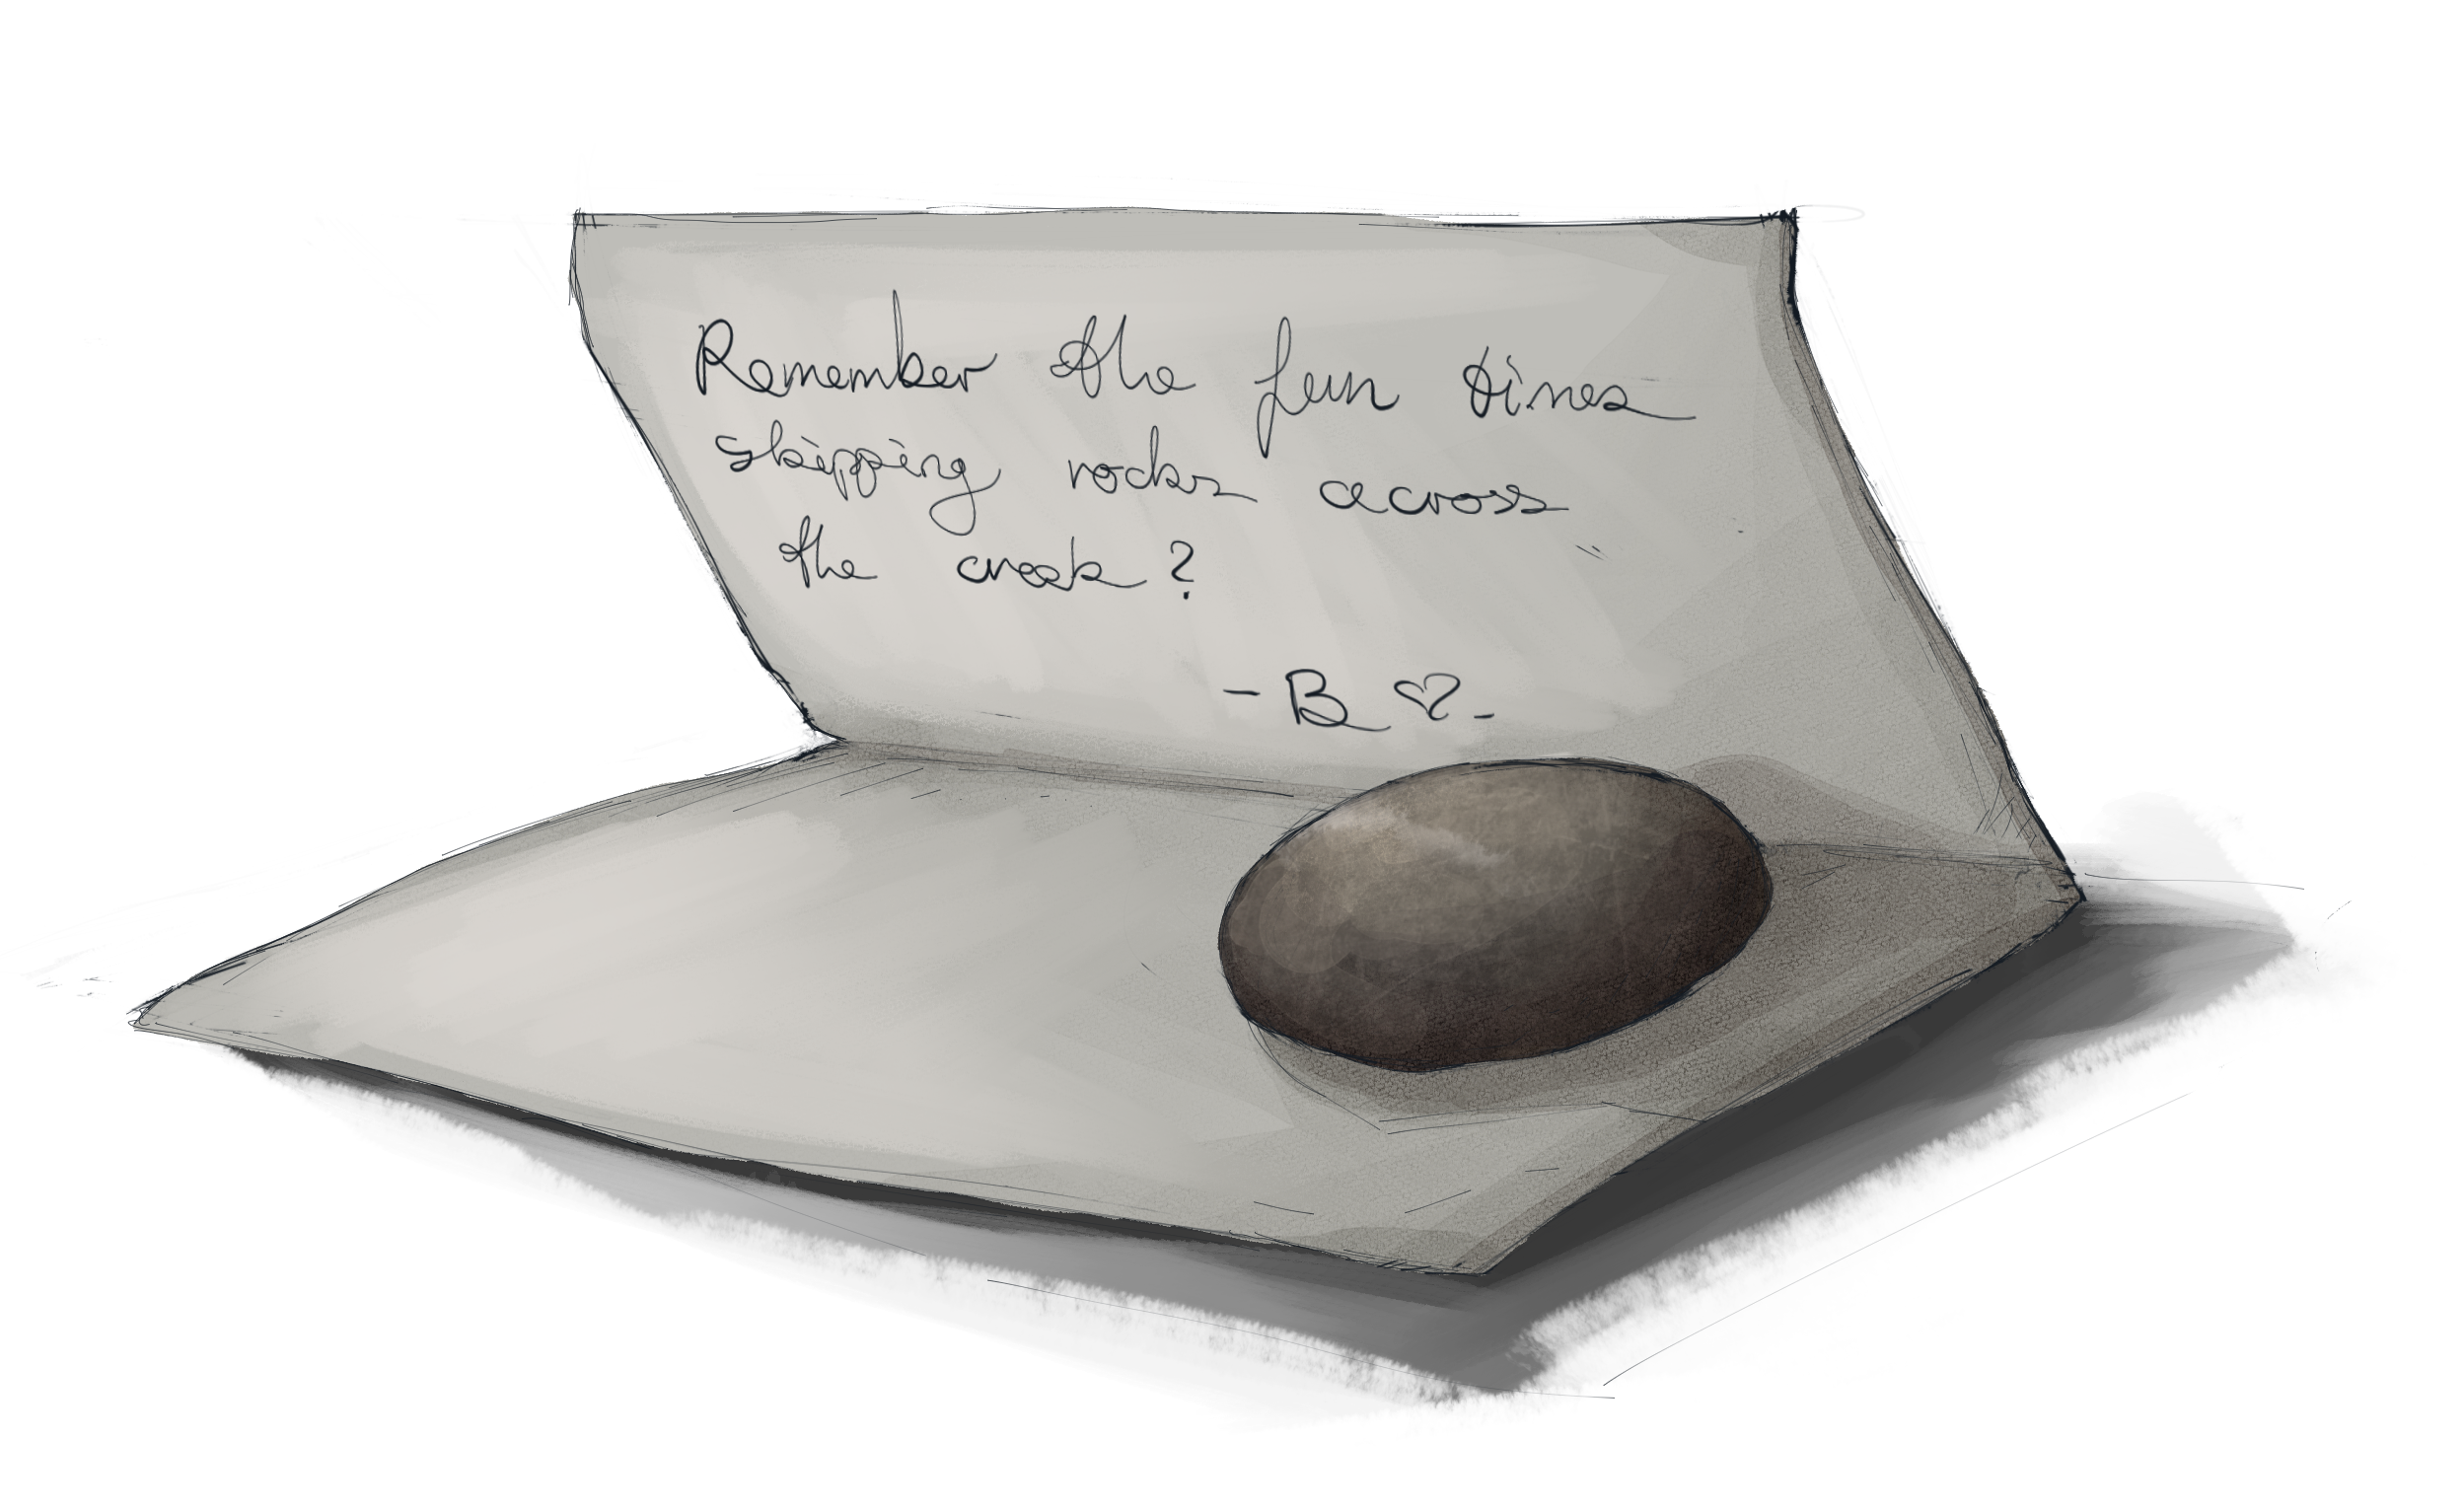 Remember the fun times
skipping rocks across
the creek?
- B ♡ -